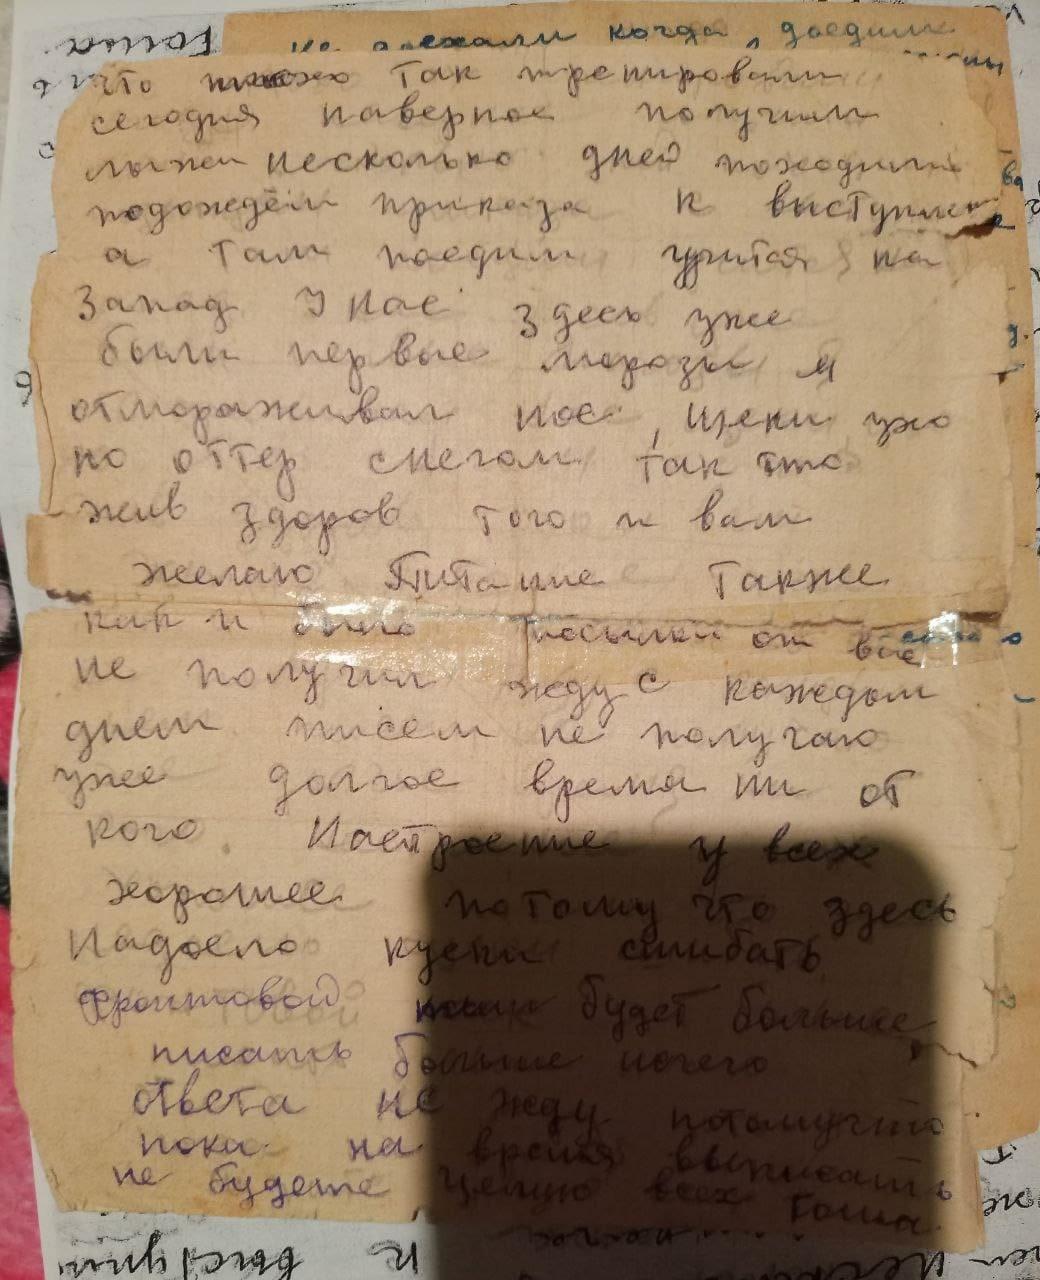 не доехали когда, доедим
что плохо так тренировали
сегодня наверное получим
лыжи несколько дней походим
подождём приказа к выступлен
а там поедим учится на
Запад У нас здесь уже
были первые морозы я
отмораживал нос, щеки ухо
но оттер снегом так што
жив здоров того и вам
желаю Питание также
как и было посылки от вас
не получил жду с каждым
днем писем не получаю
уже долгое время ни от
кого. Настроение у всех
хорошее потому что здесь
Надоело куски сшибать
фронтовой будет больше
писать больше нечего
ответа не жду потомучто
пока на время вы писать
не будете Целую всех Гоша.